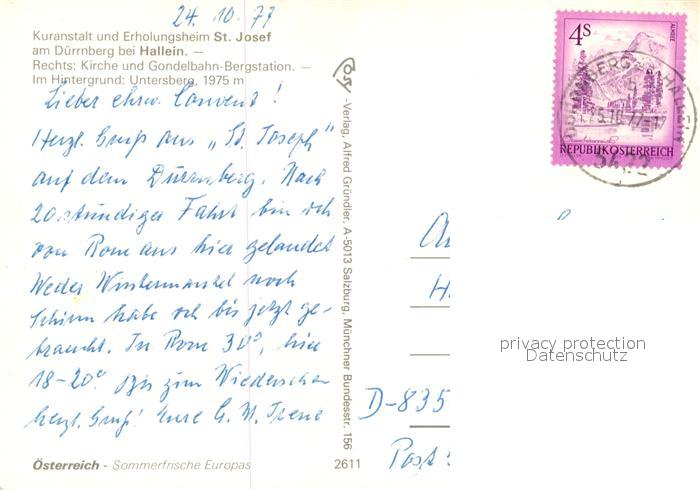 24. 10. 77
Kuranstalt und Erholungsheim St. Josef
am Dürrnberg bei Hallein. —
Rechts: Kirche und Gondelbahn-Bergstation. —
Im Hintergrund: Untersberg, 1975 m
Lieber ehrw. Convent!
Herzl. Gruß aus „St. Joseph"
auf dem Dürrnberg. Nach
20 stündiger Fahrt bin ich
von Rom aus hier gelandet
Weder Wintermantel noch
Schirm habe ich bis jetzt ge-
braucht. In Rom 30°, hier
18-20°. Bis zum Wiedersehen
herzl. Gruß! Eure G. M. Irene
Österreich - Sommerfrische Europas
2611
Cosy -Verlag, Alfred Gründler, A-5013 Salzburg, Münchner Bundesstr. 156
4 S
ALMSEE
REPUBLIK ÖSTERREICH
5422
D-835
Post
privacy protection
Datenschutz